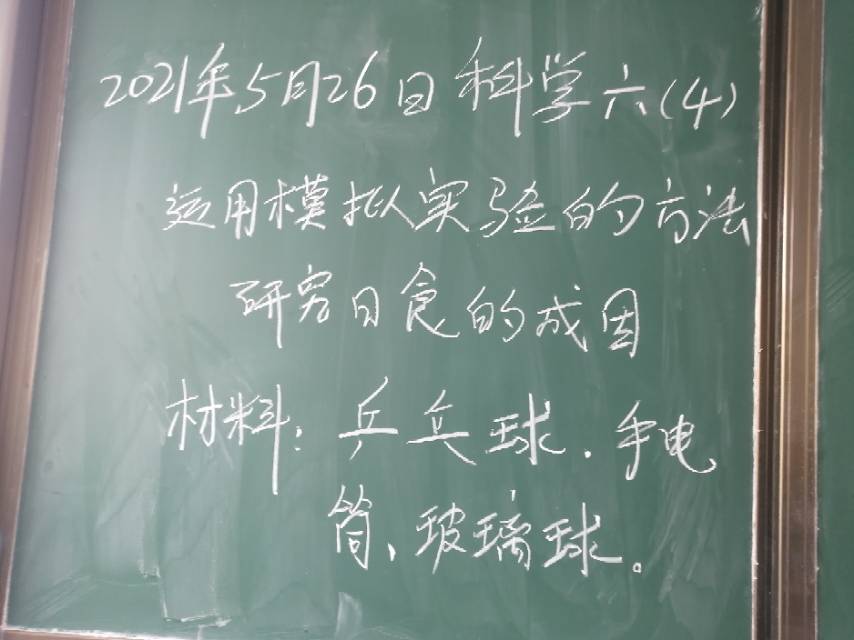 2021年5月26日科学六(4)
运用模拟实验的方法
研究日食的成因
材料:乒乓球.手电
筒、玻璃球。